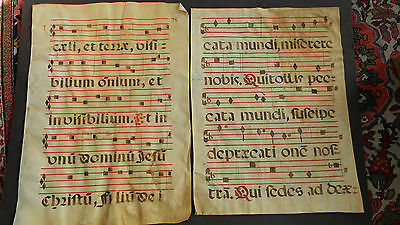 cæli, et terræ, visi
bilium omnium, et
invisibilium. Et in
unū dominū Jesū
Christū, Filiū De i
cata mundi, miserere
nobis. Qui tollis pec-
cata mundi, suscipe
depræcati onē nos-
trā. Qui sedes ad dex-